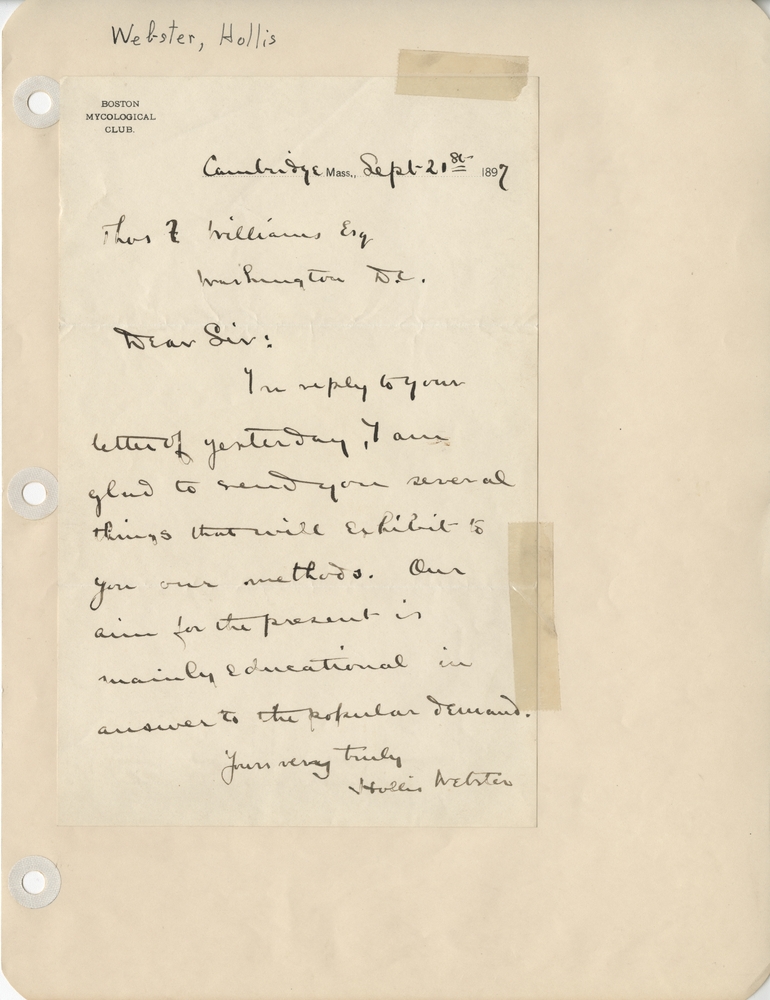 Webster, Hollis
BOSTON
MYCOLOGICAL
CLUB.
Cambridge Mass., Sept 21st 1897
Thos Williams Esq
Washington D.C.
Dear Sir:
In reply to your
letter of yesterday, I am
glad to send you several
things that will exhibit to
you our methods. Our
aim for the present is
mainly educational in
answer to the popular demand.
Yours very truly
Hollis Webster